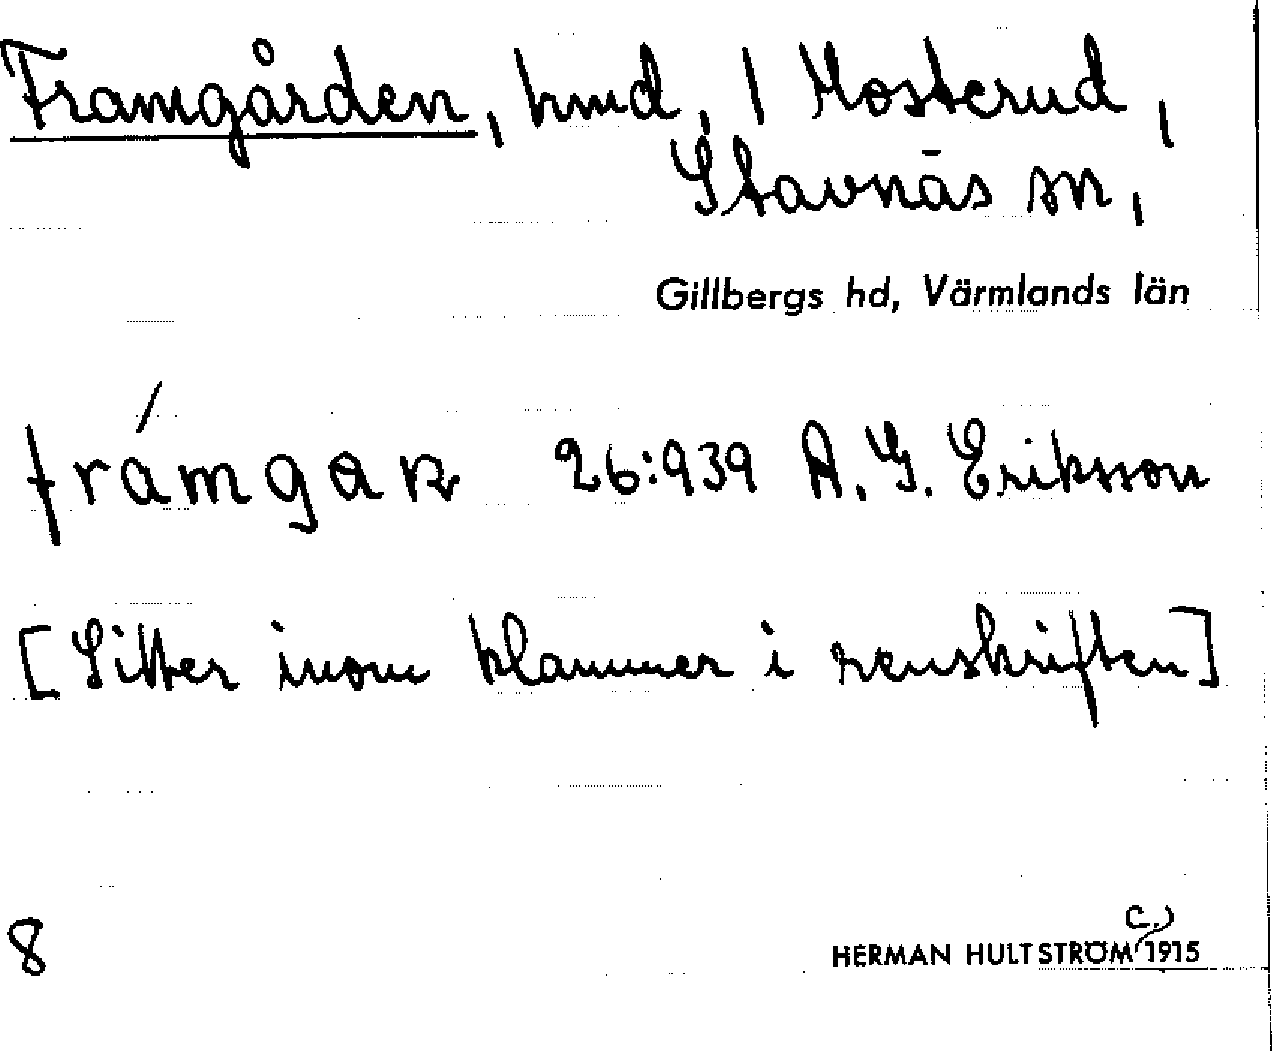 Framgården, hmd, 1 Mosterud,
Stavnäs sn,
Gillbergs hd, Värmlands län
26:939 A. G. Eriksson
[Sitter inom klammer i renskriften]
8
HERMAN HULTSTRÖM (c.) 1915